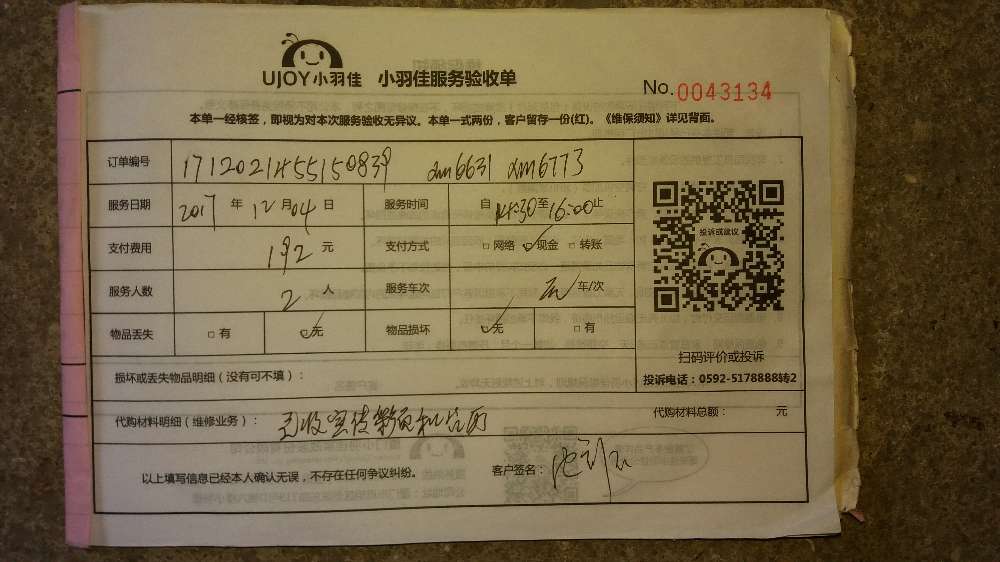 UJOY小羽佳 小羽佳服务验收单
No. 0043134
本单一经核签，即视为对本次服务验收无异议。本单一式两份，客户留存一份(红)。《维保须知》详见背面。
订单编号 171202145515083 dm6631 dm6773
服务日期 2017 年 12 月 04 日 服务时间 自 14:30 至 16:00 止
投诉或建议
支付费用 192 元 支付方式 □ 网络 ☑ 现金 □ 转账
服务人数 2 人 服务车次 车/次
物品丢失 □ 有 ☑ 无 物品损坏 ☑ 无 □ 有
扫码评价或投诉
投诉电话：0592-5178888转2
损坏或丢失物品明细（没有可不填）：
代购材料明细（维修业务）： 已收宣传彩页和台历 代购材料总额： 元
以上填写信息已经本人确认无误，不存在任何争议纠纷。 客户签名：